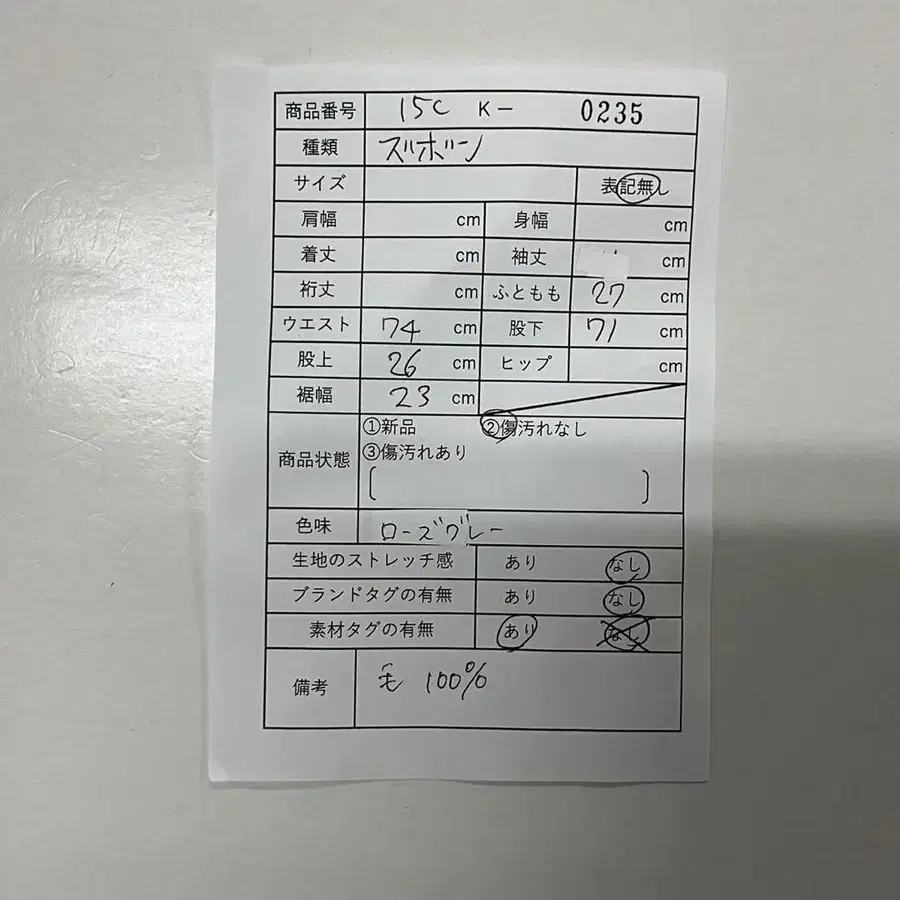 商品番号 15C K- 0235
種類 ズボン
サイズ 表記無し
肩幅 cm 身幅 cm
着丈 cm 袖丈 cm
裄丈 cm ふともも 27 cm
ウエスト 74 cm 股下 71 cm
股上 26 cm ヒップ cm
裾幅 23 cm
①新品 ②傷汚れなし
商品状態 ③傷汚れあり
[ ]
色味 ローズグレー
生地のストレッチ感 あり なし
ブランドタグの有無 あり なし
素材タグの有無 あり なし
備考 毛 100%